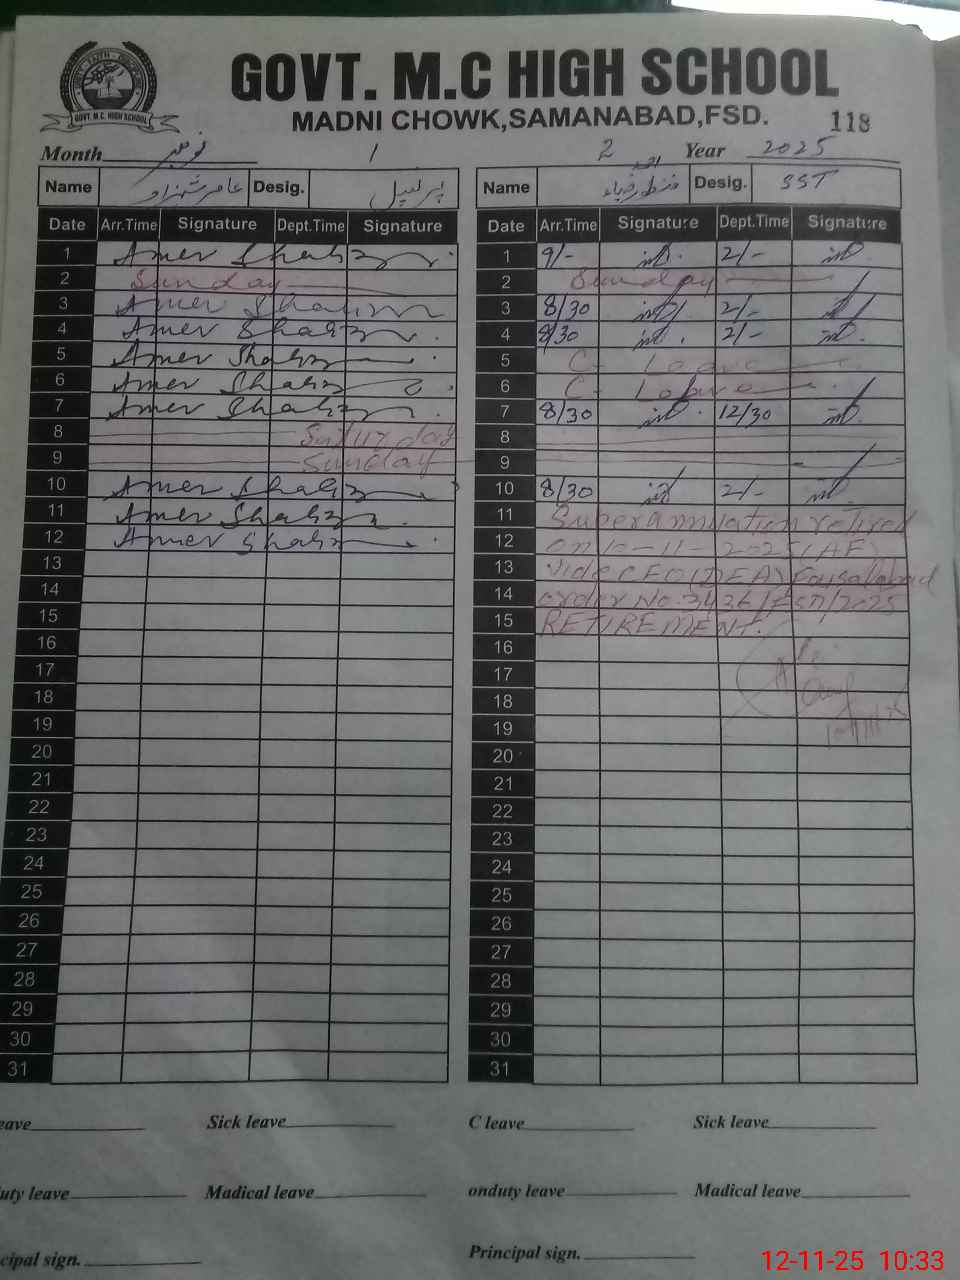 GOVT. M.C HIGH SCHOOL
GOVT. M.C. HIGH SCHOOL
MADNI CHOWK,SAMANABAD,FSD.
118
Month نومبر 1 2 Year 2025
Name عامر شہزاد Desig. پرنسپل
Name منظور ضیاء احمد Desig. SST
Date Arr.Time Signature Dept.Time Signature
Date Arr.Time Signature Dept.Time Signature
1 Amer Shahz
2 Sunday
3 Amer Shahz
4 Amer Shahz
5 Amer Shahz
6 Amer Shahz
7 Amer Shahz
8 Saturday
9 Sunday
10 Amer Shahz
11 Amer Shahz
12 Amer Shahz
13
14
15
16
17
18
19
20
21
22
23
24
25
26
27
28
29
30
31
1 9/- 2/-
2 Sunday
3 8/30 2/-
4 8/30 2/-
5 C- Leave
6 C- Leave
7 8/30 12/30
8
9
10 8/30 2/-
11 Superannuation retired
12 on 10-11-2025 (AF)
13 Vide CEO (DEA) Faisalabad
14 order No. 3436/EST/2025
15 RETIREMENT.
16
17
18
19
20
21
22
23
24
25
26
27
28
29
30
31
eave Sick leave
uty leave Madical leave
cipal sign.
C leave Sick leave
onduty leave Madical leave
Principal sign.
12-11-25 10:33